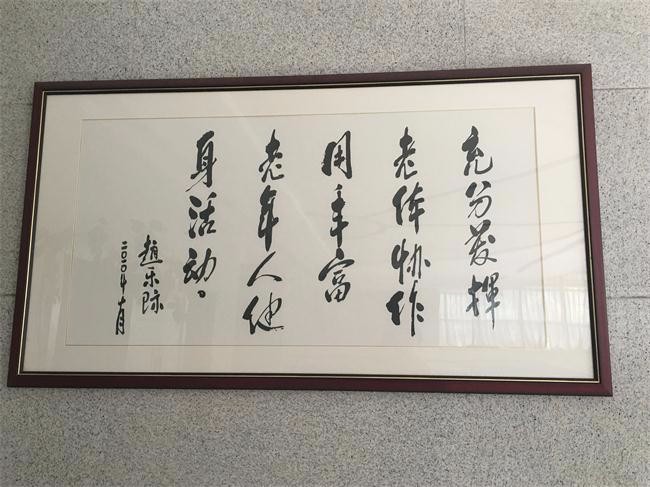 充分发挥
老体协作
用丰富
老年人健
身活动。
赵乐际
二〇〇四年十月